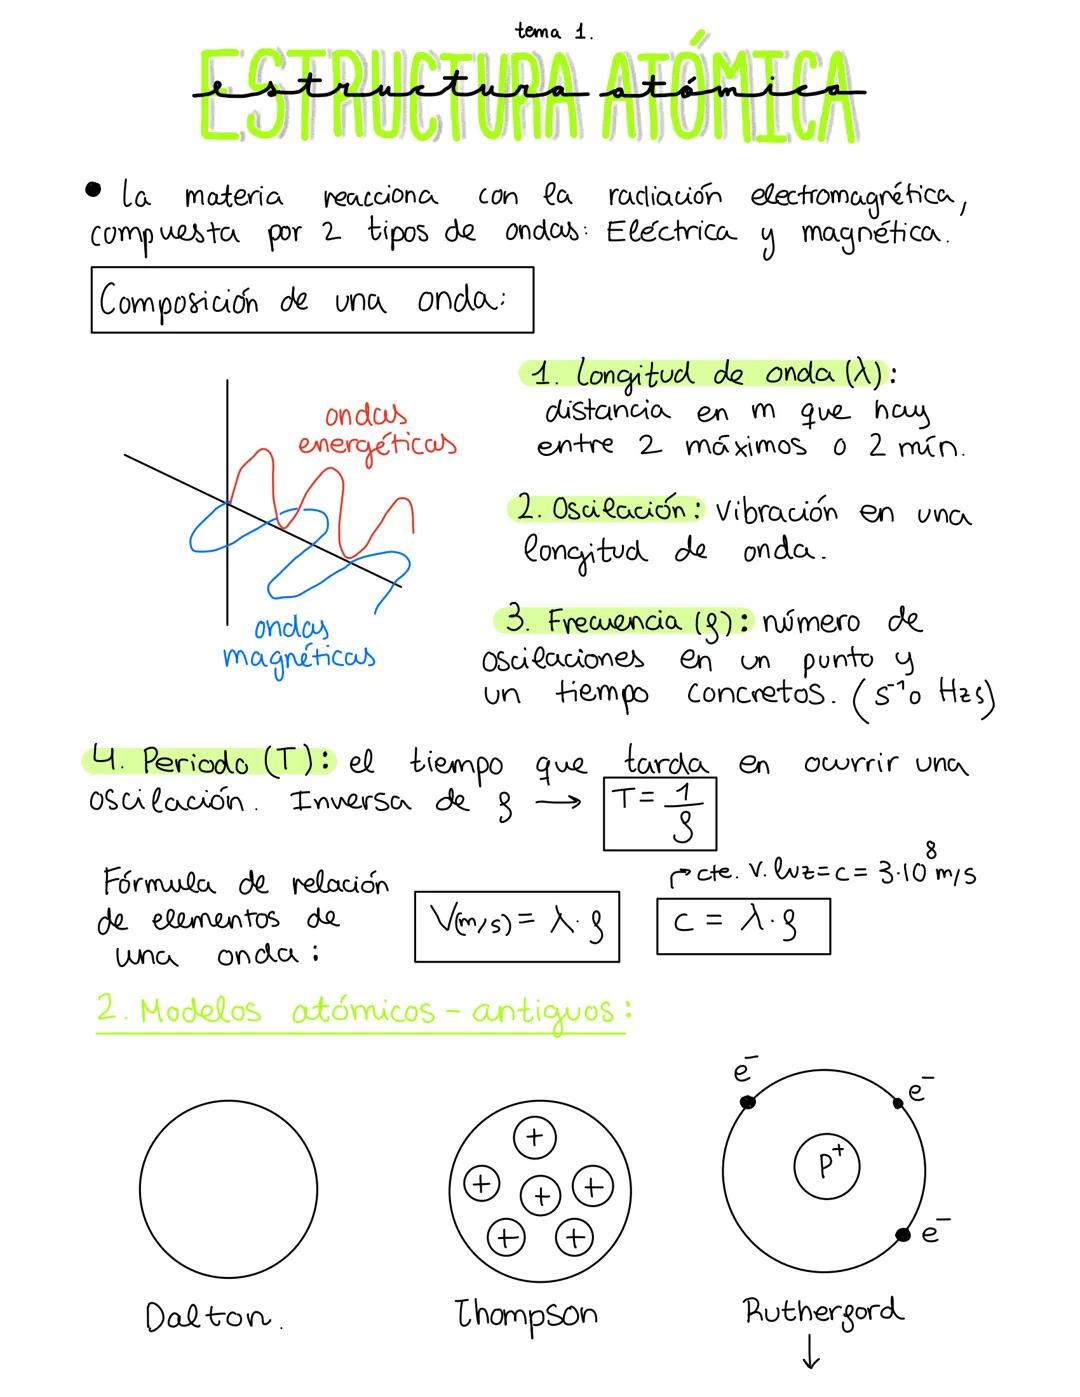 tema 1.
ESTRUCTURA ATÓMICA
estructura atómica
• La materia reacciona con la radiación electromagnética,
compuesta por 2 tipos de ondas: Eléctrica y magnética.
Composición de una onda:
ondas
energéticas
ondas
magnéticas
1. Longitud de onda (λ):
distancia en m que hay
entre 2 máximos o 2 mín.
2. Oscilación: Vibración en una
longitud de onda.
3. Frecuencia (f): número de
oscilaciones en un punto y
un tiempo concretos. (s⁻¹o Hzs)
4. Periodo (T): el tiempo que tarda en ocurrir una
oscilación. Inversa de f → T = 1/f
Fórmula de relación
de elementos de
una onda:
V(m/s) = λ·f
cte. v. luz = c = 3·10⁸ m/s
c = λ·f
2. Modelos atómicos - antiguos:
+
+ + +
+ +
e⁻
e⁻
p⁺
e⁻
Dalton.
Thompson
Rutherford
↓